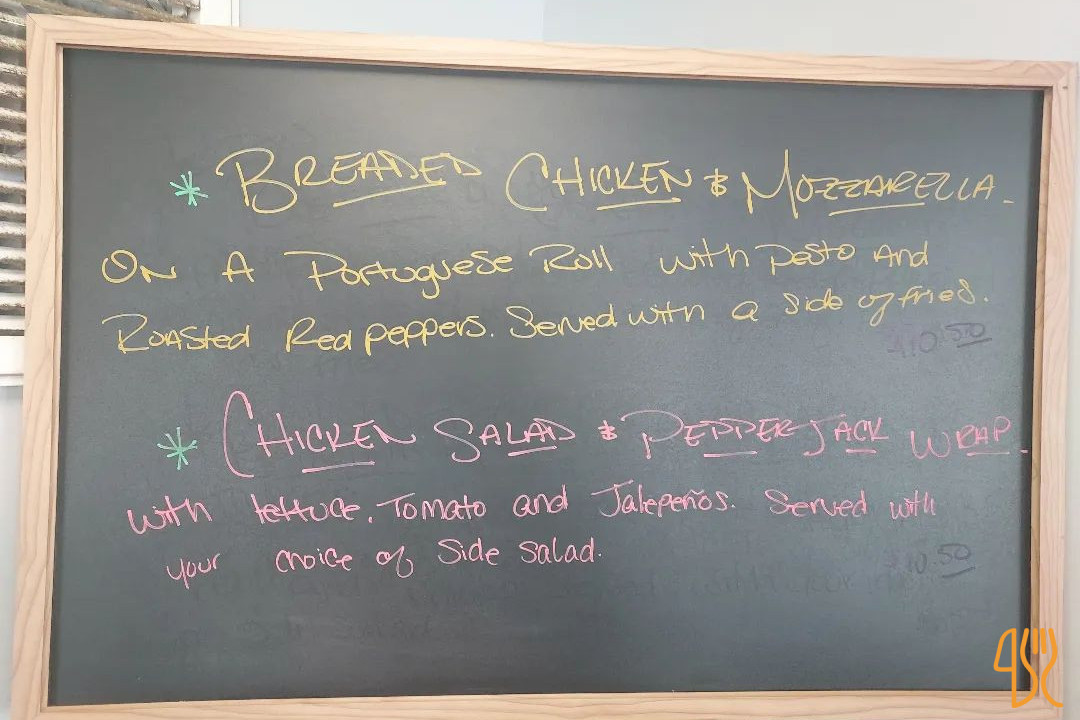 * BREADED CHICKEN & MOZZARELLA.
ON A Portuguese Roll with pesto And
Roasted Red peppers. Served with a side of fries.
$10.50
* CHICKEN SALAD & PEPPER JACK WRAP.
with lettuce, Tomato and Jalepeños. Served with
your choice of Side salad.
$10.50